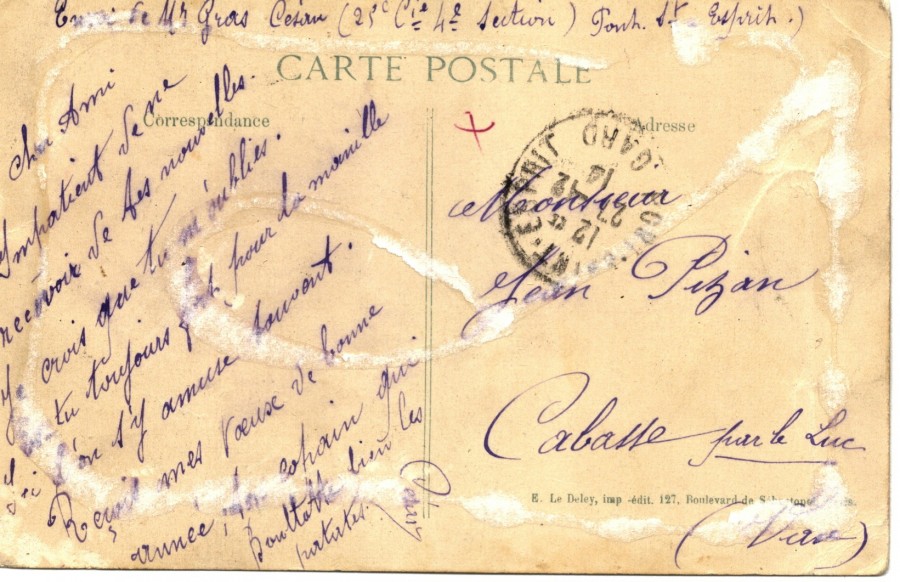 Envoi de Mr Gras César (25e Cie 4e Section) Pont. St. Esprit.)
CARTE POSTALE
Correspondance
Adresse
Cher Ami
Impatient de ne
recevoir de tes nouvelles.
Je crois que tu m'oublies.
tu toujours pour la manille
Ici l'on s'y amuse souvent.
Reçoit mes vœux de bonne
année, copain qui
bien les
patates.
César
Monsieur
Jean Pizan
Cabasse par le Luc
(Var)
E. Le Deley, imp-édit. 127, Boulevard de
GARD
12
27
12
14